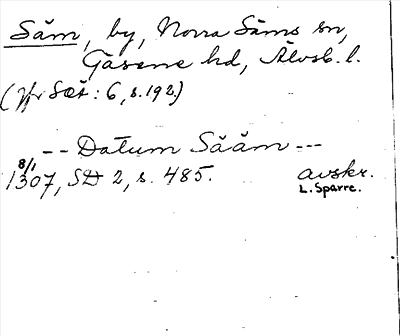 Säm, by, Norra Säms sn,
Gäsene hd, Älvsb. l.
(Jfr SOÄ: 6, s. 192.)
-- Datum Sääm ---
8/1
1307, SD 2, s. 485. avskr.
L. Sparre.